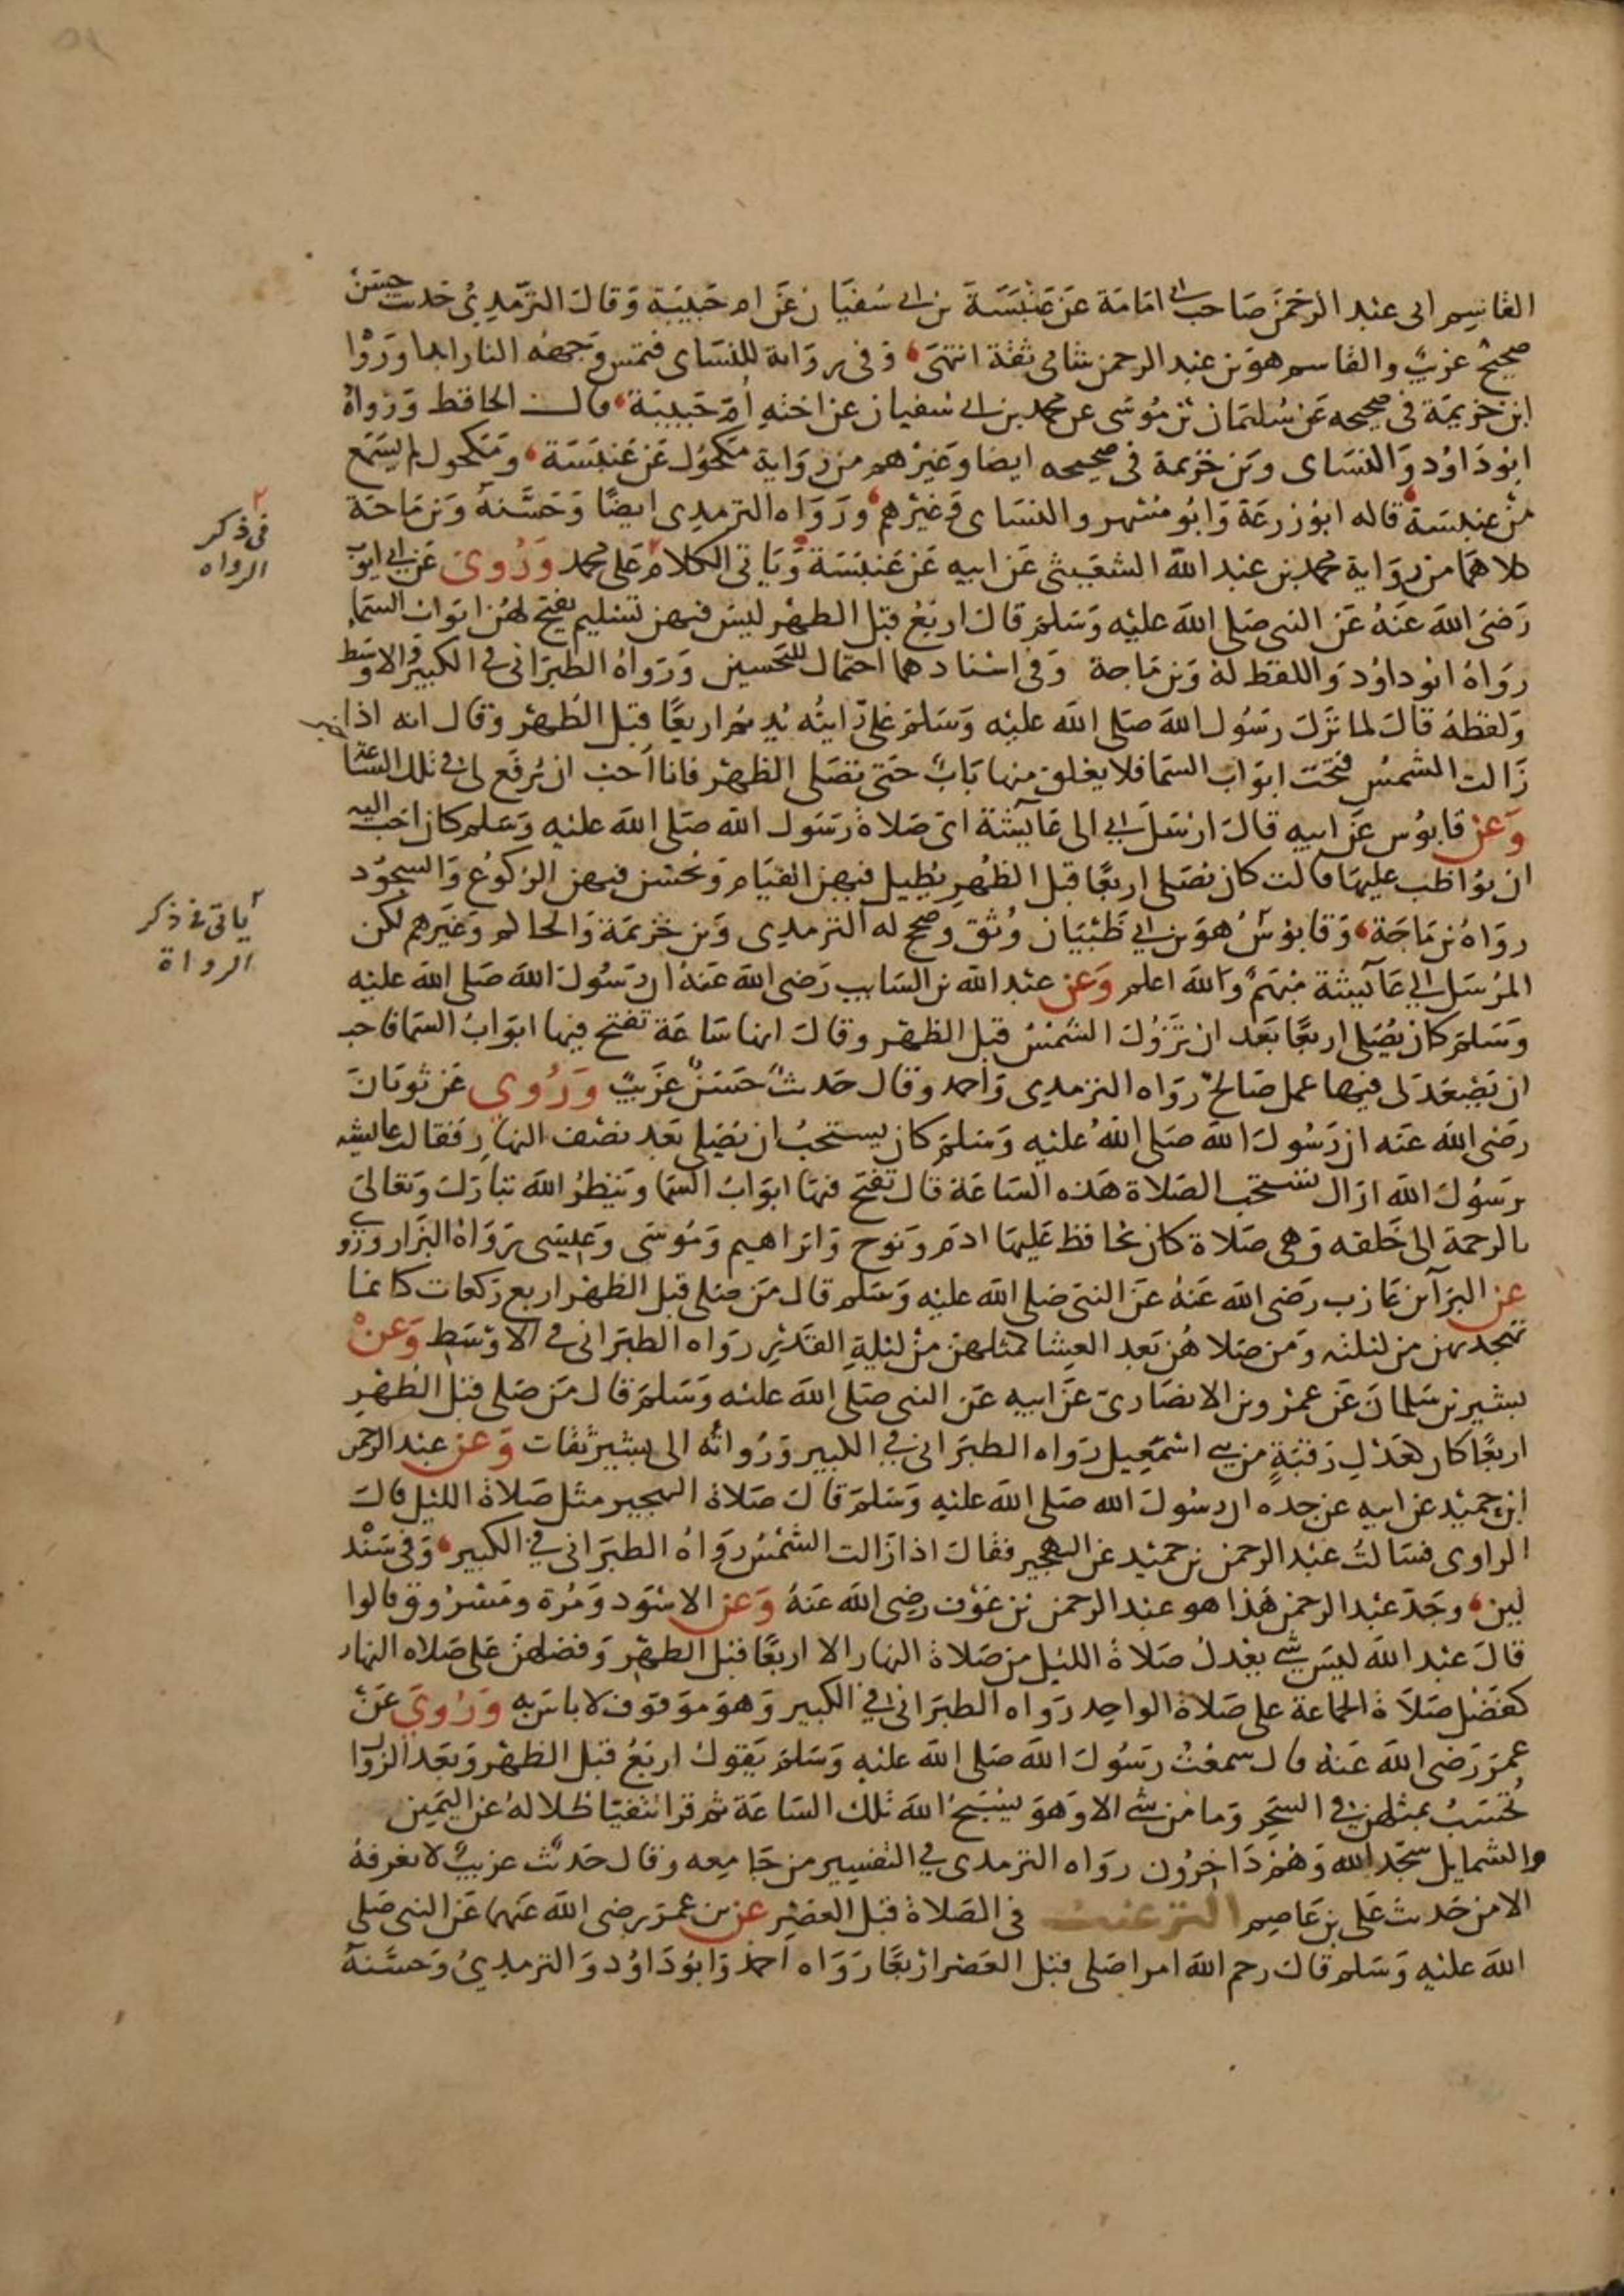 القاسم ابى عبد الرحمن صاحب ابى امامة عن عنبسة بن ابى سفيان عن ام حبيبة وقال الترمذي حديث حسن
صحيح غريب والقاسم هو بن عبد الرحمن شامى ثقة انتهى وفى رواية للنساى فتمس وجهه النار ابدا ورواه
ابن خزيمة فى صحيحه عن سليمان بن موسى عن محمد بن ابى سفيان عن اخته أم حبيبة قال الحافظ ورواه
ابو داود والنساى وبن خزيمة فى صحيحه ايضا وغيرهم من رواية مكحول عن عنبسة ومكحول لم يسمع
من عنبسة قاله ابو زرعة وابو مسهر والنساى وغيرهم ورواه الترمذى ايضا وحسنه وبن ماجة
كلاهما من رواية محمد بن عبد الله الشعيثى عن ابيه عن عنبسة وياتى الكلام على محمد وروى عن ابى ايوب
فى ذكر
الرواه
رضى الله عنه عن النبى صلى الله عليه وسلم قال اربع قبل الظهر ليس فيهن تسليم يفتح لهن ابواب السما
رواه ابو داود واللفظ له وبن ماجة وفى اسنادهما احتمال للتحسين ورواه الطبرانى فى الكبير والاوسط
ولفظه قال لما نزل رسول الله صلى الله عليه وسلم على رايته يديم اربعا قبل الظهر وقال انه اذا
زالت الشمس فتحت ابواب السما فلا يغلق منها باب حتى تصلى الظهر فانا احب ان يرفع لى فى تلك الساعة خير
وعن قابوس عن ابيه قال ارسل ابى الى عايشة اى صلاة رسول الله صلى الله عليه وسلم كان احب اليه
ان يواظب عليها قالت كان يصلى اربعا قبل الظهر يطيل فيهن القيام ويحسن فيهن الركوع والسجود
رواه بن ماجة وقابوس هو بن ابى ظبيان وثق وصحح له الترمذى وبن خزيمة والحاكم وغيرهم لكن
ياتى فى ذكر
الرواة
المرسل الى عايشة مبهم والله اعلم وعن عبد الله بن السايب رضى الله عنه ان رسول الله صلى الله عليه
وسلم كان يصلى اربعا بعد ان تزول الشمس قبل الظهر وقال انها ساعة تفتح فيها ابواب السما فاحب
ان يصعد لى فيها عمل صالح رواه الترمذى واحمد وقال حديث حسن غريب وروى عن ثوبان
رضى الله عنه ان رسول الله صلى الله عليه وسلم كان يستحب ان يصلى بعد نصف النهار فقالت عايشه
يرسول الله اراك تستحب الصلاة هذه الساعة قال تفتح فيها ابواب السما وينظر الله تبارك وتعالى
بالرحمة الى خلقه وهى صلاة كان يحافظ عليها ادم ونوح وابراهيم وموسى وعيسى رواه البزار وروى
عن البرآ بن عازب رضى الله عنه عن النبى صلى الله عليه وسلم قال من صلى قبل الظهر اربع ركعات كانما
تهجد بهن من ليلته ومن صلاهن بعد العشا كمثلهن من ليلة القدر رواه الطبرانى فى الاوسط وعن
بشير بن سلمان عن عمرو بن الانصارى عن ابيه عن النبى صلى الله عليه وسلم قال من صلى قبل الظهر
اربعا كان كعدل رقبة من بنى اسمعيل رواه الطبرانى فى الكبير ورواته الى بشير ثقات وعن عبد الرحمن
ابن حميد عن ابيه عن جده ان رسول الله صلى الله عليه وسلم قال صلاة الهجير مثل صلاة الليل قال
الراوى فسالت عبد الرحمن بن حميد عن الهجير فقال اذا زالت الشمس رواه الطبرانى فى الكبير وفى سنده
لين وجد عبد الرحمن هذا هو عبد الرحمن بن عوف رضى الله عنه وعن الاسود ومرة ومسروق قالوا
قال عبد الله ليس شى يعدل صلاة الليل من صلاة النهار الا اربعا قبل الظهر وفضلهن على صلاه النهار
كفضل صلاة الجماعة على صلاة الواحد رواه الطبرانى فى الكبير وهو موقوف لا باس به وروى عن
عمر رضى الله عنه قال سمعت رسول الله صلى الله عليه وسلم يقول اربع قبل الظهر وبعد الزوال
تحتسب بمثلهن فى السحر وما من شى الا وهو يسبح الله تلك الساعة ثم قرا تتفيا ظلاله عن اليمين
والشمايل سجدا لله وهم داخرون رواه الترمذى فى التفسير من جامعه وقال حديث غريب لا نعرفه
الا من حديث على بن عاصم الترغيب فى الصلاة قبل العصر عن بن عمر رضى الله عنهما عن النبى صلى
الله عليه وسلم قال رحم الله امرا صلى قبل العصر اربعا رواه احمد وابو داود والترمذي وحسنه